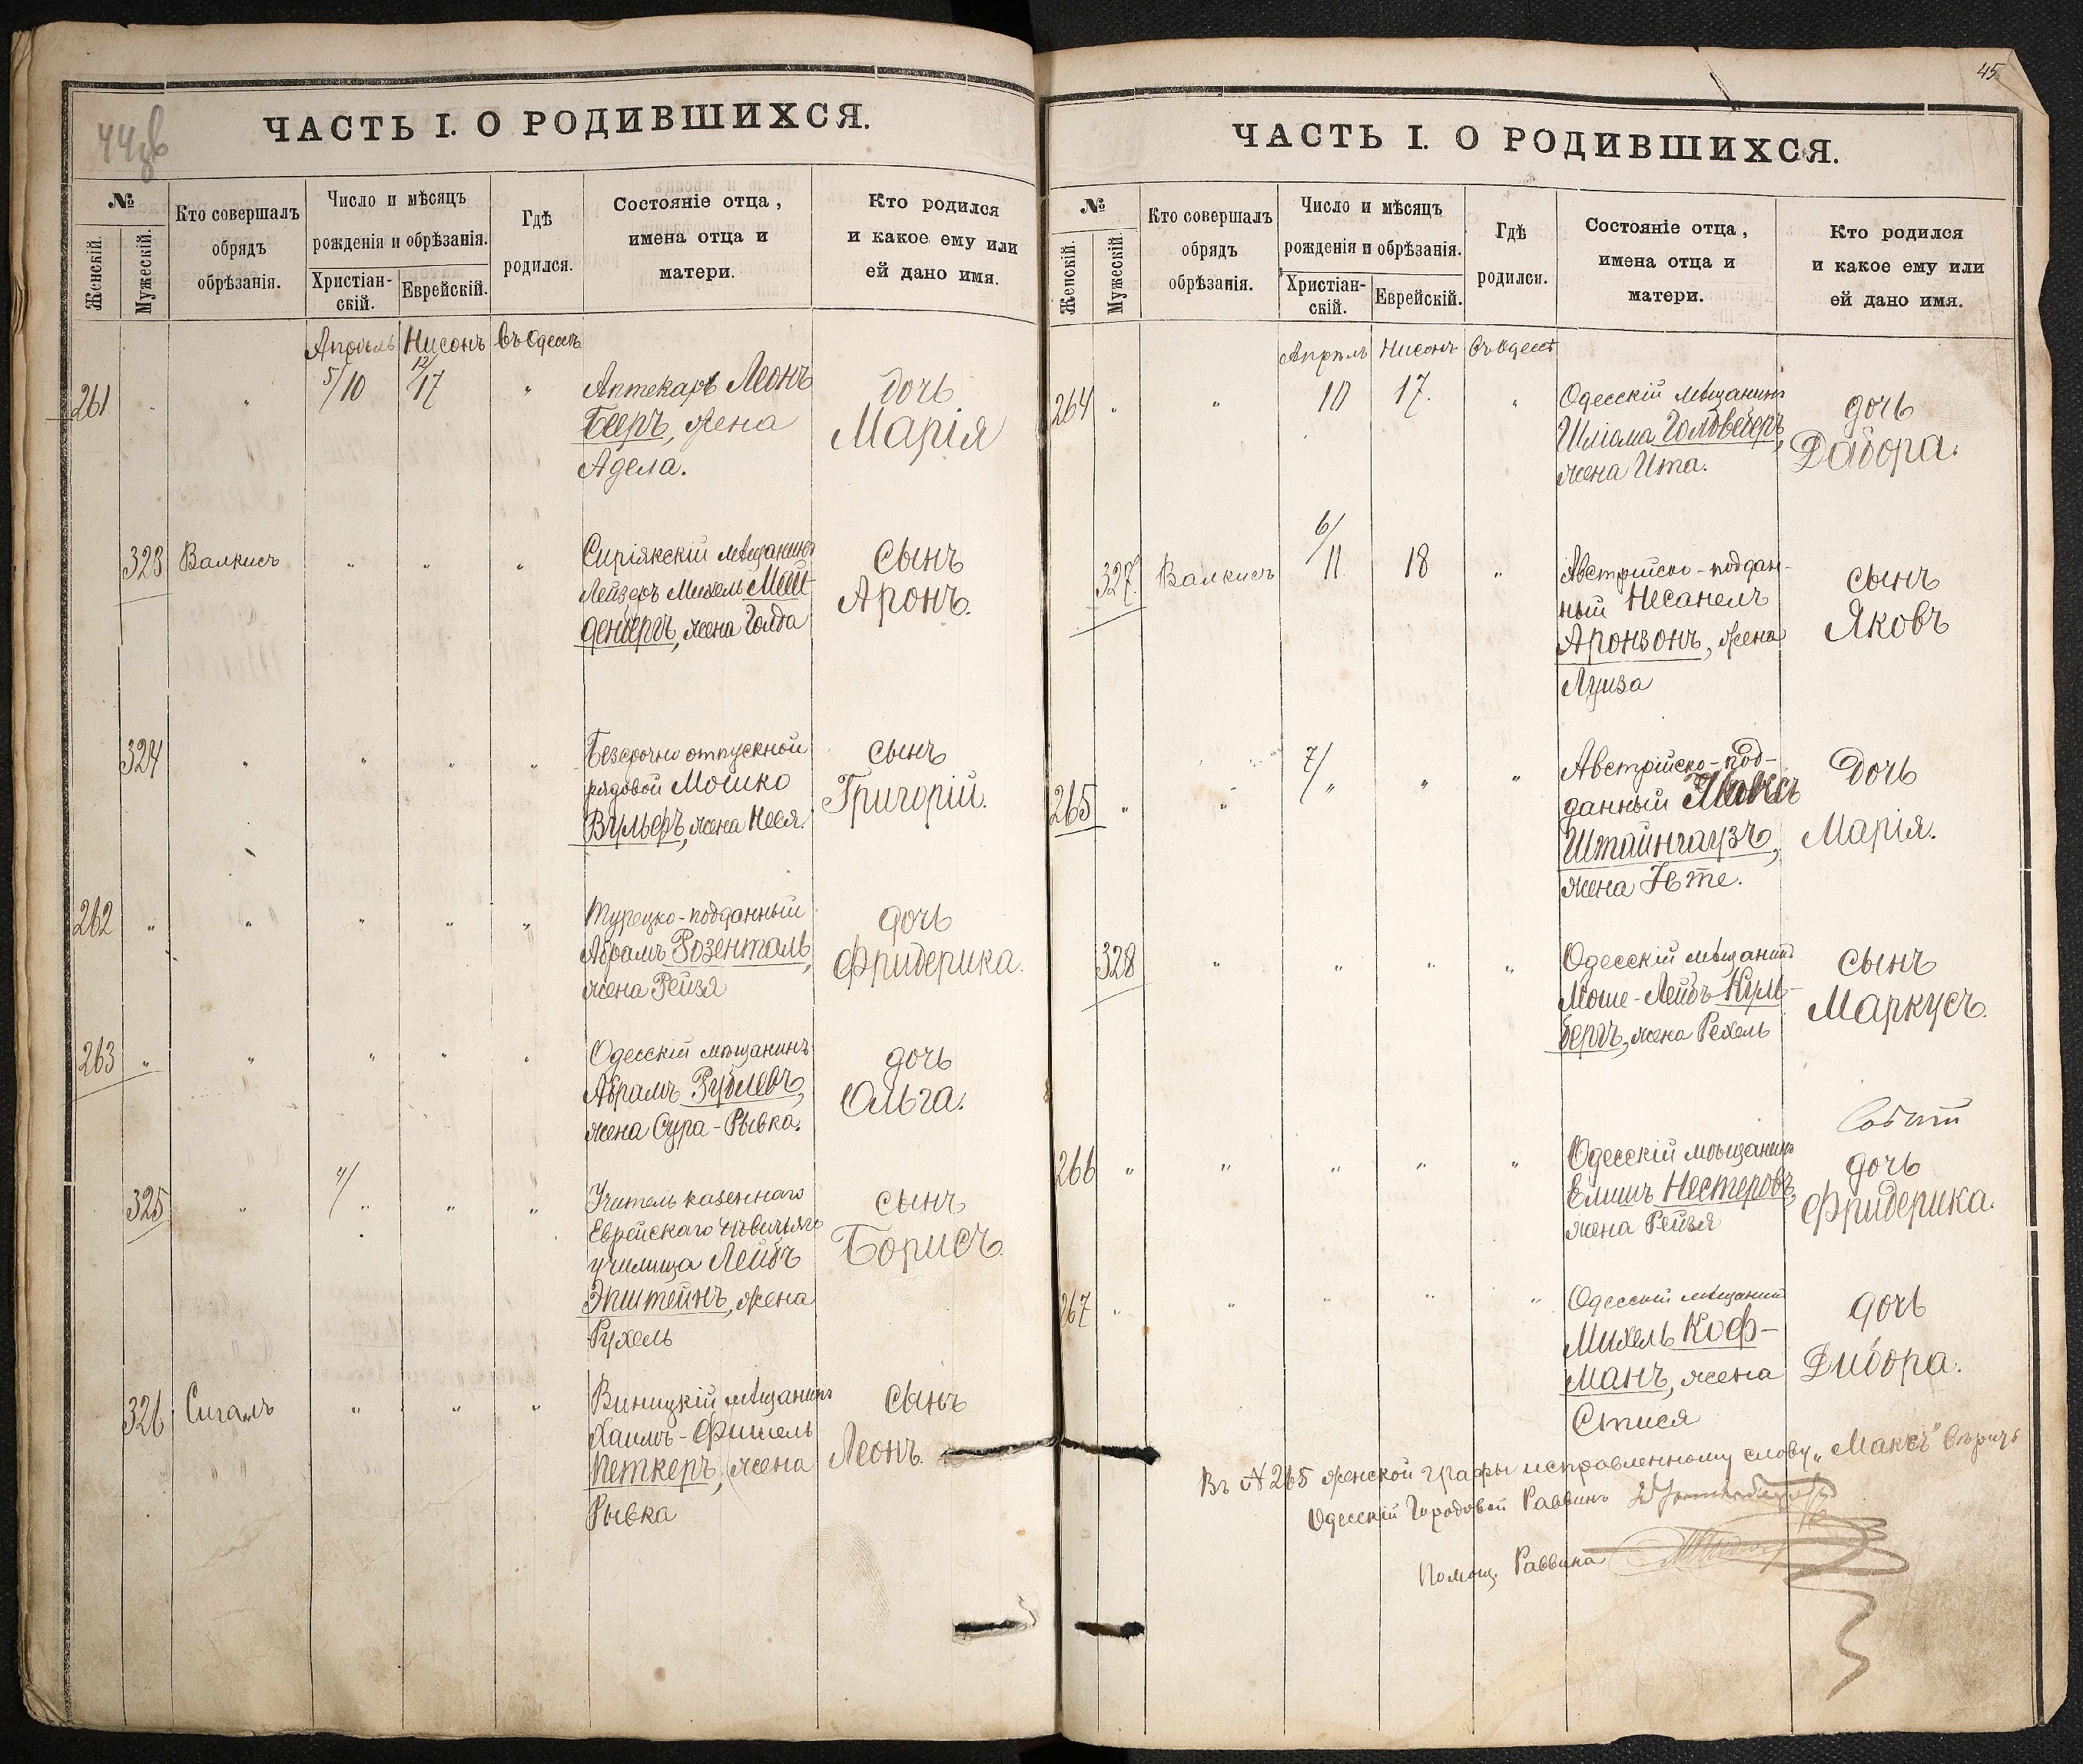 44об
ЧАСТЬ I. О РОДИВШИХСЯ.
№
Женскій.
Мужескій.
Кто совершалъ
обрядъ
обрѣзанія.
Число и мѣсяцъ
рожденія и обрѣзанія.
Христіан-
скій.
Еврейскій.
Гдѣ
родился.
Состояніе отца,
имена отца и
матери.
Кто родился
и какое ему или
ей дано имя.
Апрѣль Нисонъ Въ Одессѣ
261 " 5/10 12/17 " Аптекарь Леонъ дочь
Бееръ, жена Марія
Адела.
323 Валкисъ " " " мѣщанинъ сынъ
Лейзеръ Михель Аронъ.
жена Голда
324 " " " " Безсрочно отпускной сынъ
рядовой Мошко Григорій.
Вульферъ, жена Несея.
262 " " " " " Турецко-подданный дочь
Абрамъ Розенталь, Фридерика.
жена Рейзя
263 " " " " " Одесскій мѣщанинъ дочь
Абрамъ Рублевъ, Ольга.
жена Сура-Рывка.
325 " 4/" " " Учитель казеннаго сынъ
Еврейскаго Борисъ
училища Лейбъ
Эпштейнъ, жена
Рухель
326 Сигалъ " " " Виницкій мѣщанинъ сынъ
Хаимъ-Фишель Леонъ.
Петкеръ, жена
Рывка
45
ЧАСТЬ I. О РОДИВШИХСЯ.
№
Женскій.
Мужескій.
Кто совершалъ
обрядъ
обрѣзанія.
Число и мѣсяцъ
рожденія и обрѣзанія.
Христіан-
скій.
Еврейскій.
Гдѣ
родился.
Состояніе отца,
имена отца и
матери.
Кто родился
и какое ему или
ей дано имя.
Апрѣль Нисонъ Въ Одессѣ
264 " " 10 17. " Одесскій мѣщанинъ дочь
Шліома Голдвеберъ, Дабора.
жена Ита.
327. Валкисъ 6/11 18 " Австрійско-поддан-
ный Несанелъ сынъ
Аронзонъ, жена Яковъ
Луиза
265 " " 7/" " " Австрійско-под- Дочь
данный Максъ
Штайнгаузъ, Марія.
жена Іѣте.
328 " " " " Одесскій мѣщанинъ сынъ
Моше-Лейбъ Кули- Маркусъ.
бергъ, жена Рехель
266 " " " " " Одесскій мѣщанинъ дочь
Елишъ Нестеровъ, Фридерика.
жена Рейзя
267 " " " " " Одесскій мѣщанинъ дочь
Михель Коф-
манъ, жена Дибора.
Стися
Въ № 265 женской графы исправленному слову „Максъ" вѣрить
Одесскій Городовой Раввинъ
Помощ. Раввина